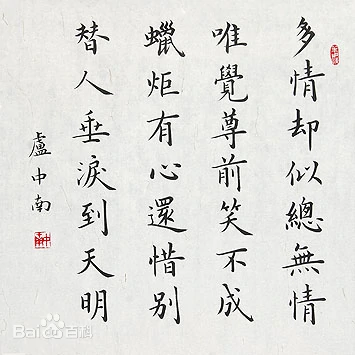 多情却似總無情
唯覺尊前笑不成
蠟炬有心還惜别
替人垂淚到天明
盧中南
Bai百科